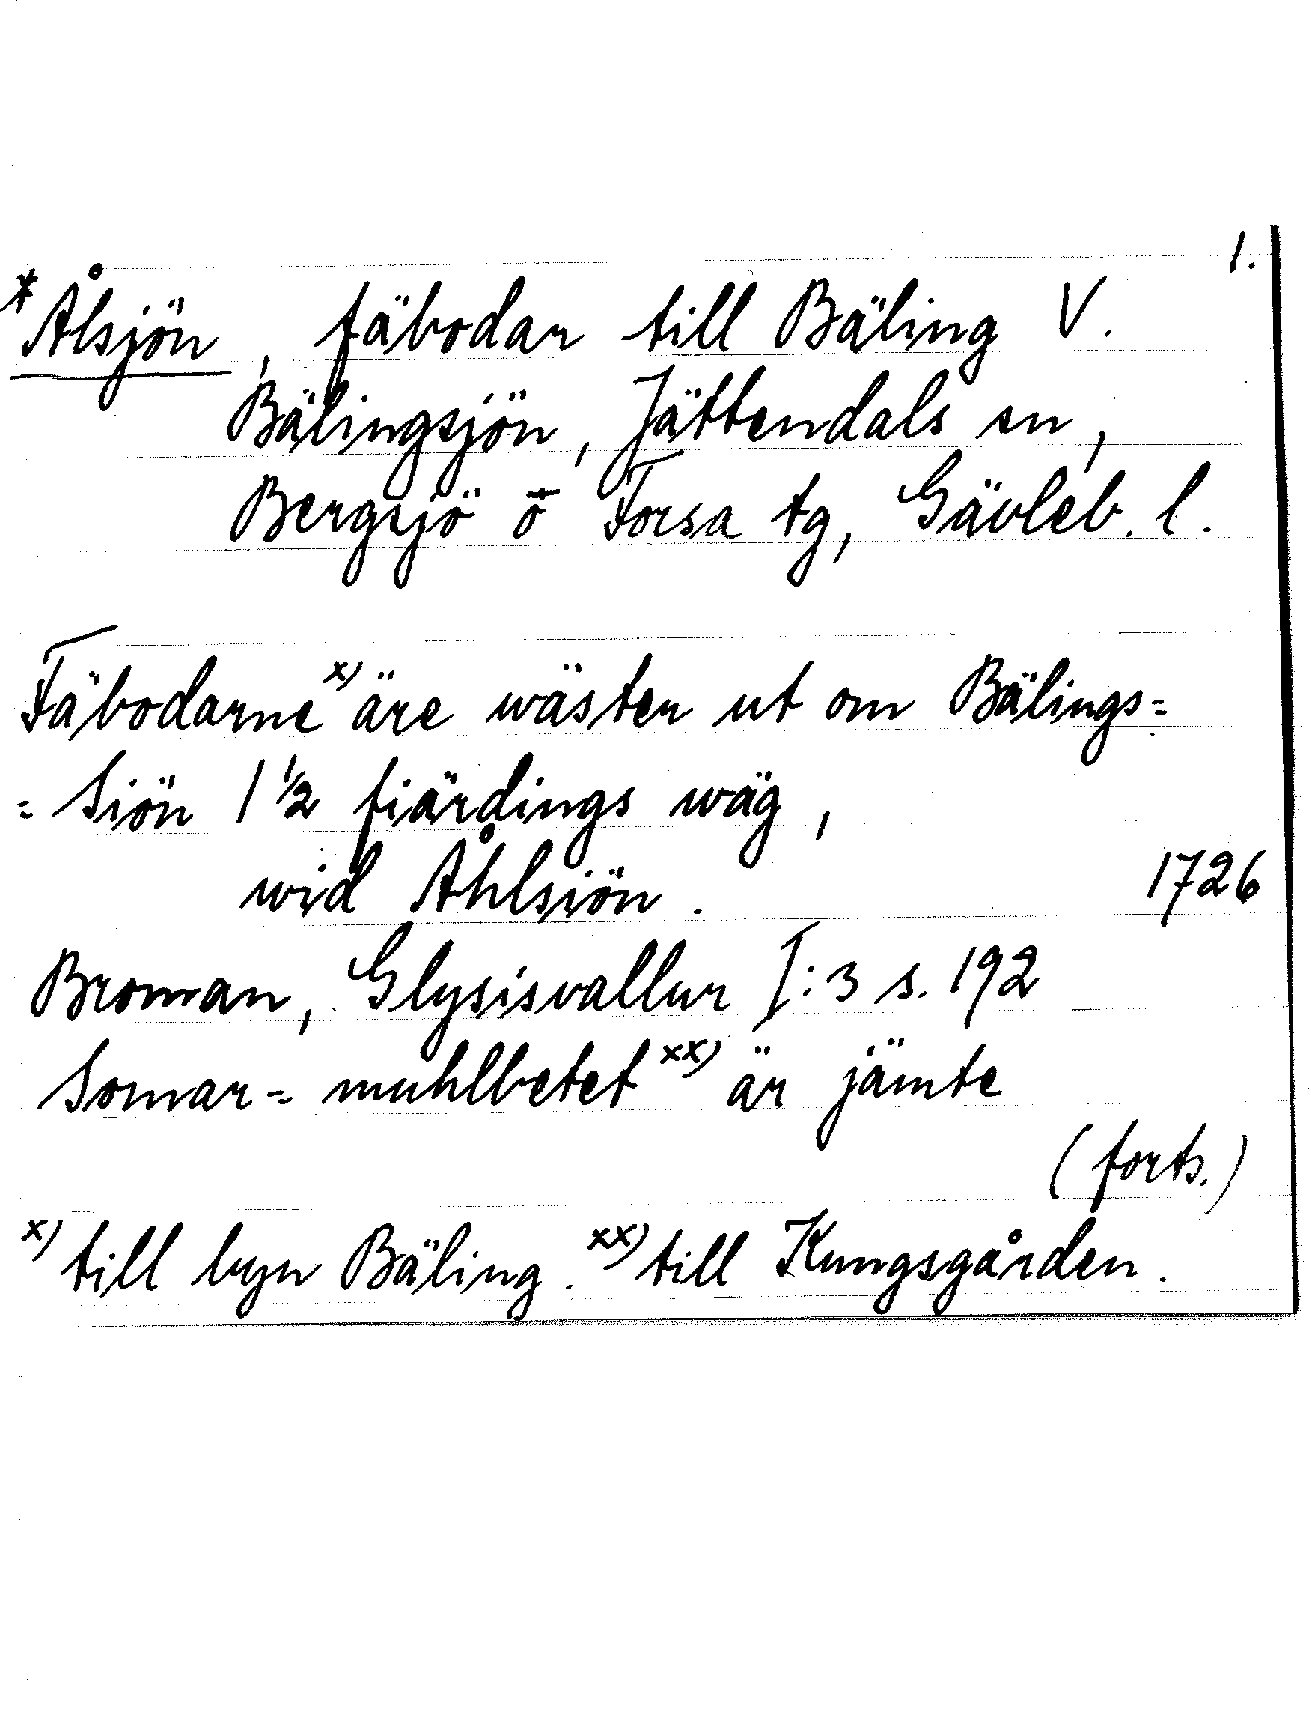 1.
*Ålsjön, fäbodar till Bäling V.
Bälingsjön, Jättendals sn,
Bergsjö o Forsa tg, Gävleb. l.
Fäbodarne x) äre wäster ut om Bälings=
=Siön 1 1/2 fiärdings wäg,
wid Åhlsiön. 1726
Broman, Glysisvallur I:3 s. 192
Somar=muhlbetet xx) är jämte
(forts.)
x) till byn Bäling. xx) till Kungsgården.